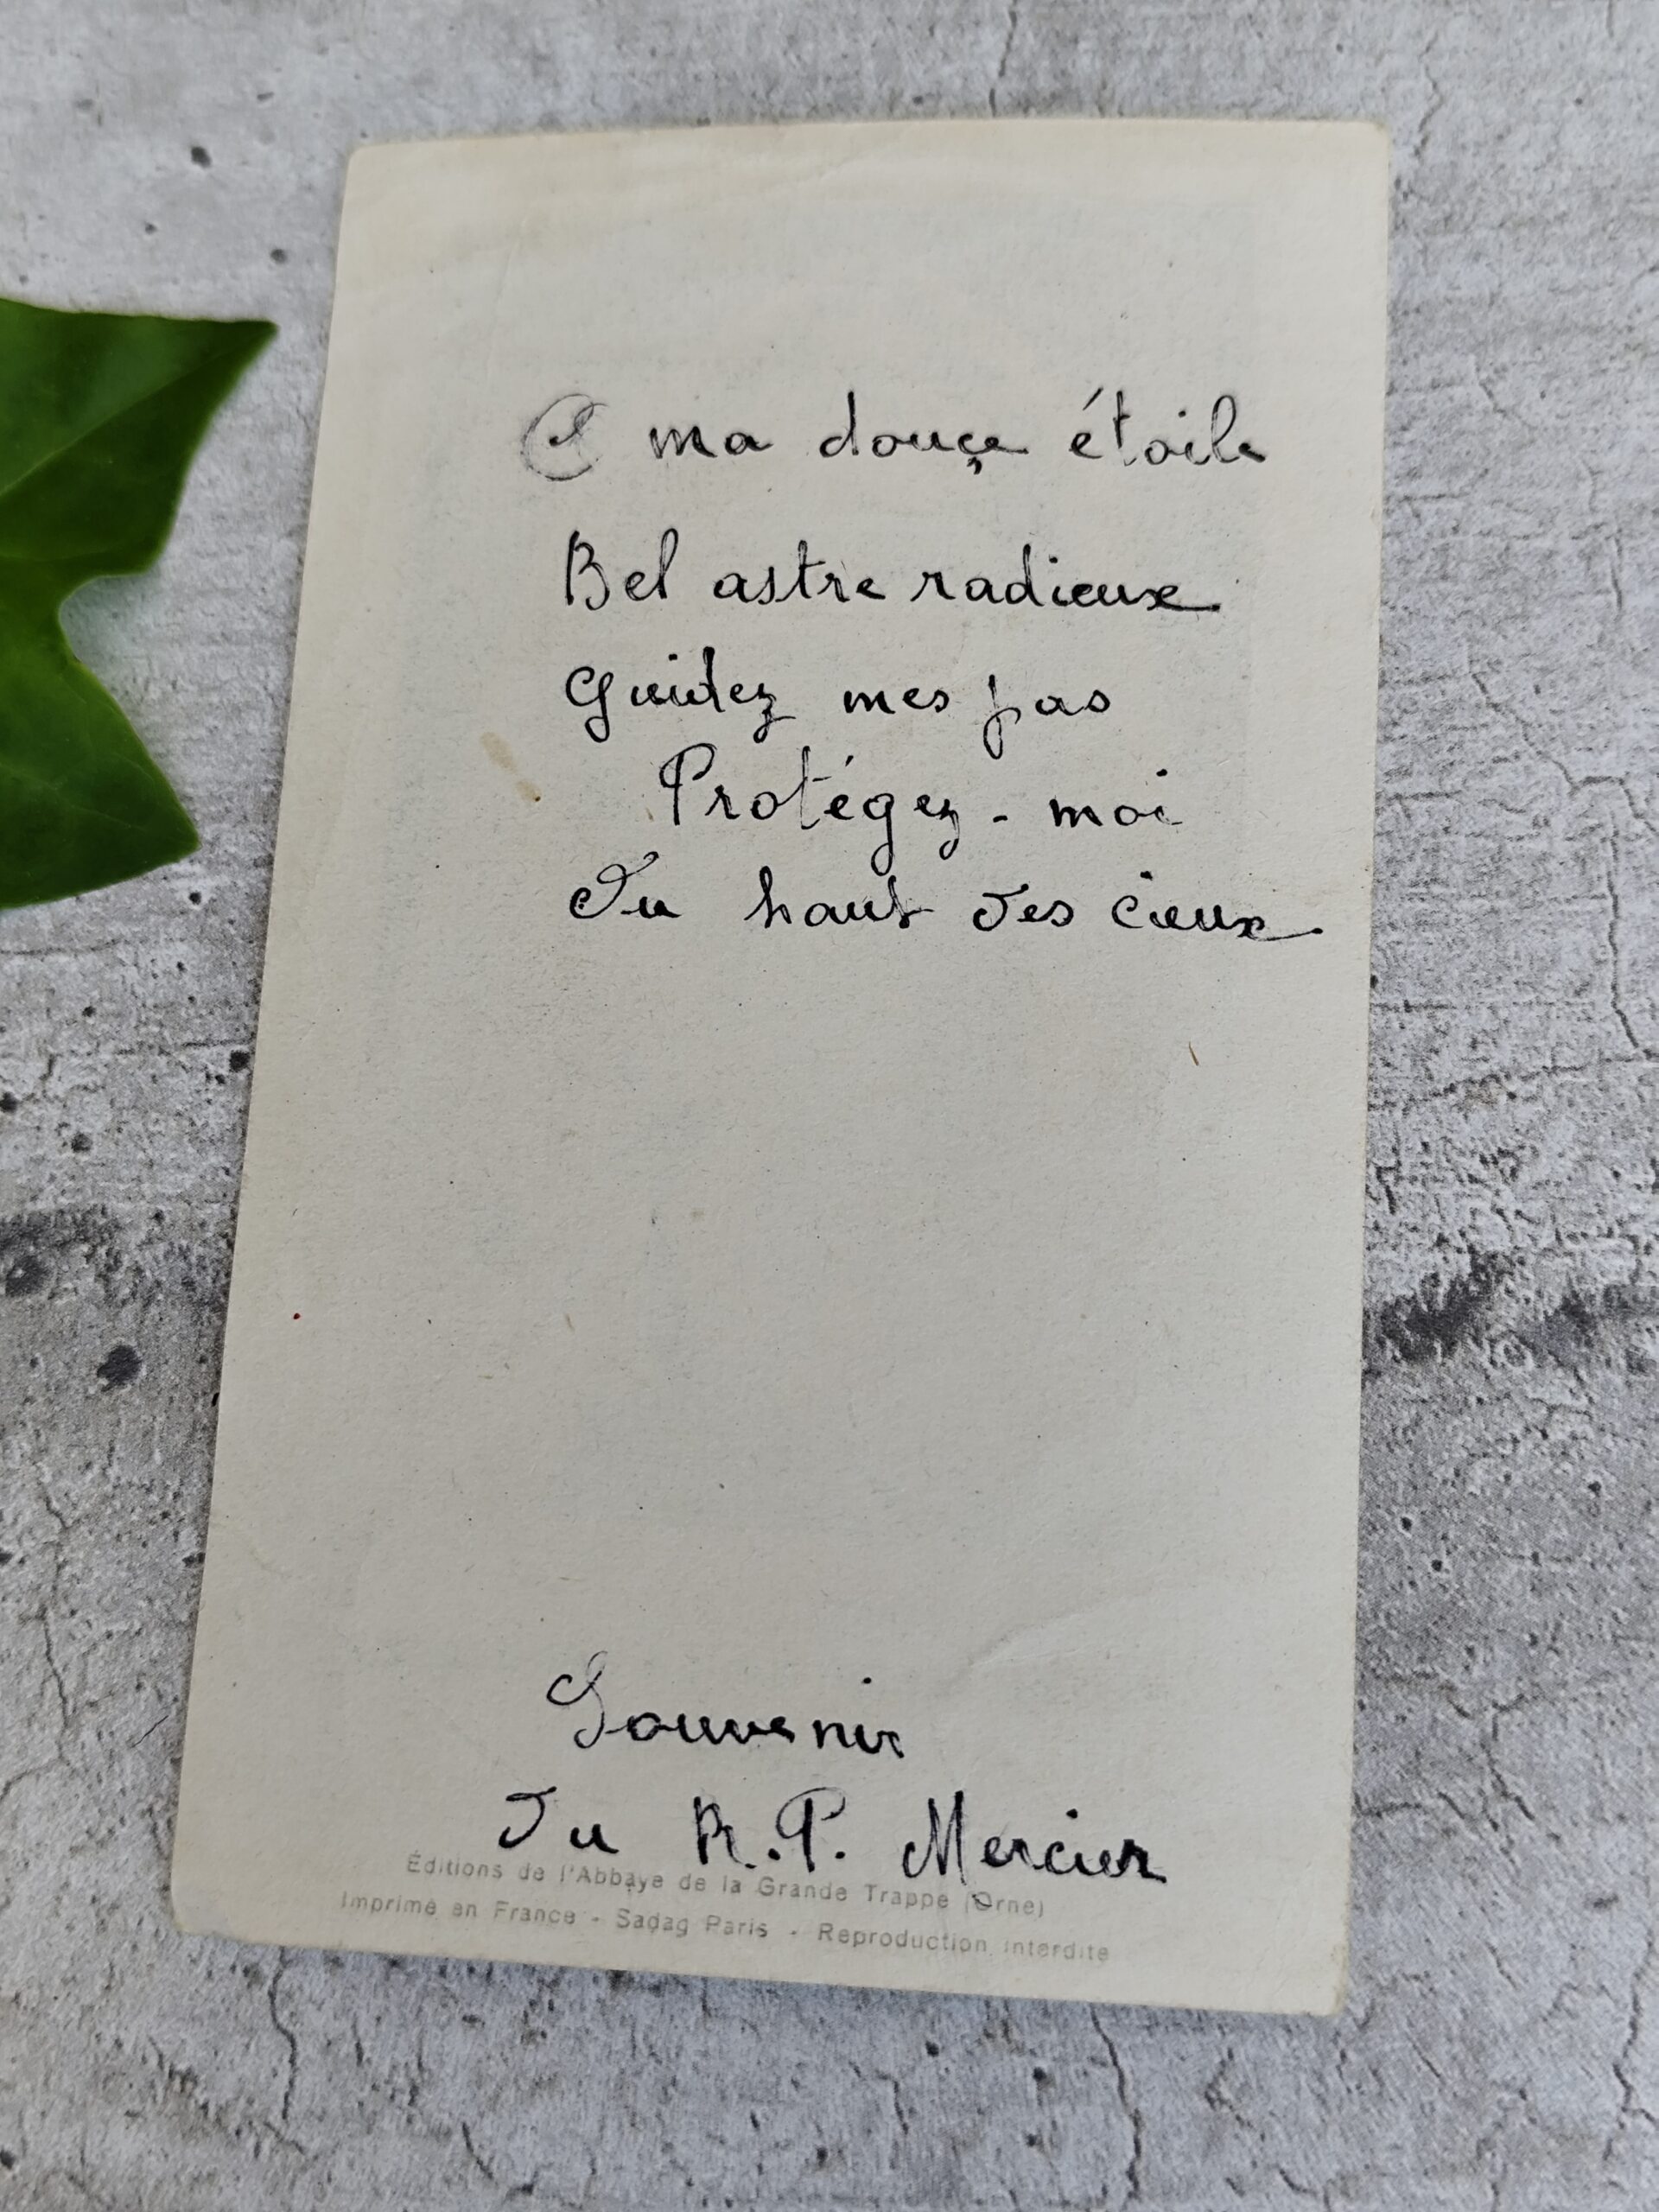 O ma douçe étoile
Bel astre radieux
Guidez mes pas
Protégez-moi
Du haut des cieux.
Souvenir
du R.P. Mercier
Éditions de l'Abbaye de la Grande Trappe (Orne)
Imprimé en France - Sadag Paris - Reproduction Interdite